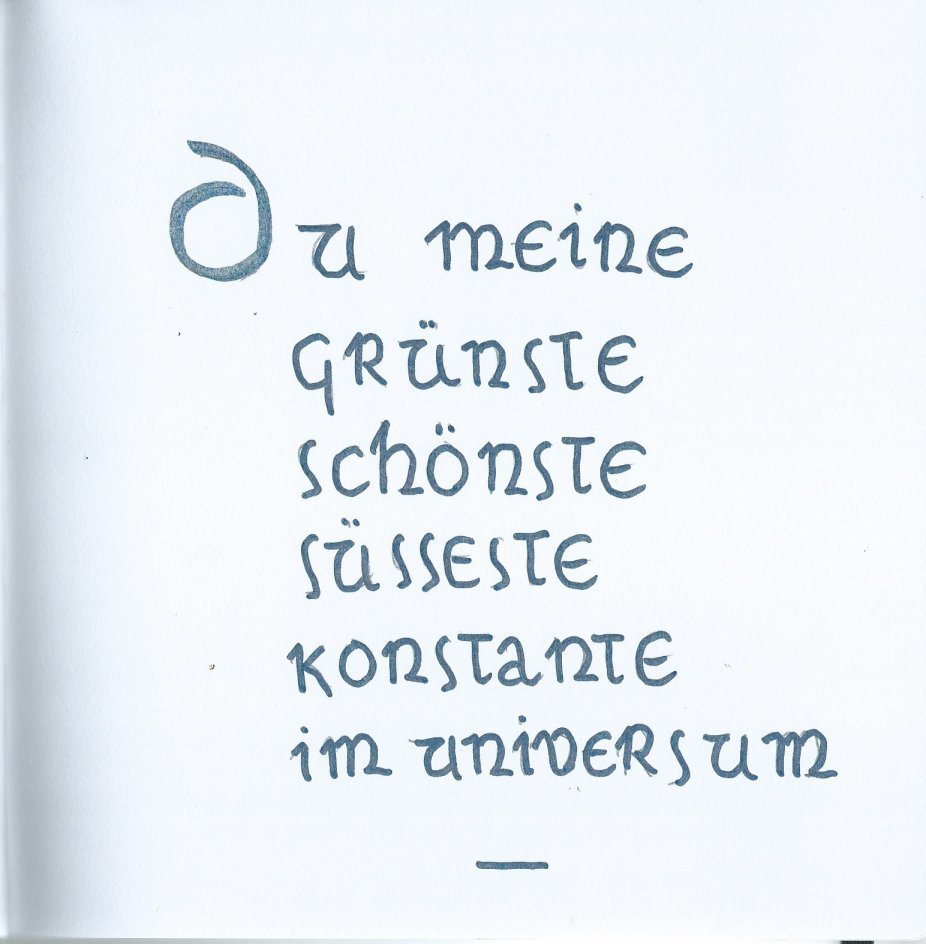 Du meine
grünste
schönste
süsseste
konstante
im universum